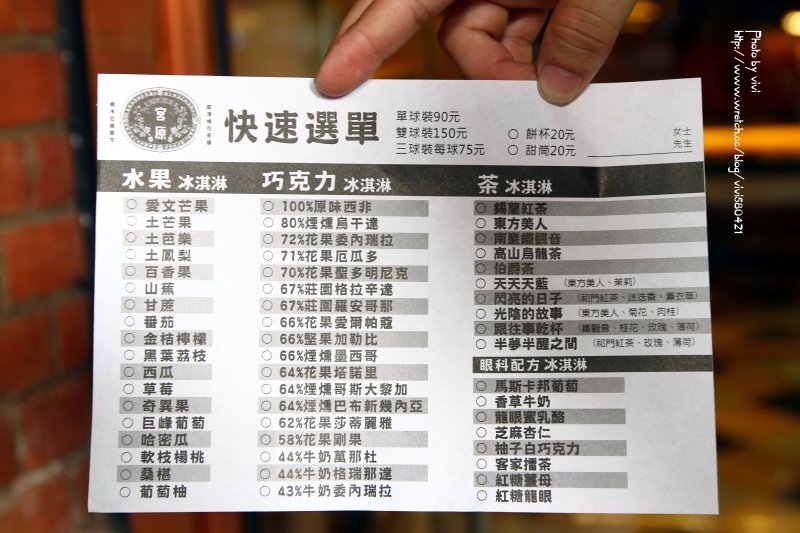 Photo by vivi
http://www.wretch.cc/blog/vivi580421
宮
原
快速選單
單球裝90元
雙球裝150元
三球裝每球75元
○ 餅杯20元
○ 甜筒20元
女士
先生
水果 冰淇淋
○ 愛文芒果
○ 土芒果
○ 土芭樂
○ 土鳳梨
○ 百香果
○ 山蕉
○ 甘蔗
○ 番茄
○ 金桔檸檬
○ 黑葉荔枝
○ 西瓜
○ 草莓
○ 奇異果
○ 巨峰葡萄
○ 哈密瓜
○ 軟枝楊桃
○ 桑椹
○ 葡萄柚
巧克力 冰淇淋
○ 100%原味西非
○ 80%煙燻烏干達
○ 72%花果委內瑞拉
○ 71%花果厄瓜多
○ 70%花果聖多明尼克
○ 67%莊園格拉辛達
○ 67%莊園羅安哥那
○ 66%花果愛爾帕蔻
○ 66%堅果加勒比
○ 66%煙燻墨西哥
○ 64%花果塔諾里
○ 64%煙燻哥斯大黎加
○ 64%煙燻巴布新幾內亞
○ 62%花果莎蒂麗雅
○ 58%花果剛果
○ 44%牛奶萬那杜
○ 44%牛奶格瑞那達
○ 43%牛奶委內瑞拉
茶 冰淇淋
○ 錫蘭紅茶
○ 東方美人
○ 南巖鐵觀音
○ 高山烏龍茶
○ 伯爵茶
○ 天天天藍 (東方美人、茉莉)
○ 閃亮的日子 (祁門紅茶、迷迭香、薰衣草)
○ 光陰的故事 (東方美人、菊花、肉桂)
○ 跟往事乾杯 (鐵觀音、桂花、玫瑰、薄荷)
○ 半夢半醒之間 (祁門紅茶、玫瑰、薄荷)
眼科配方 冰淇淋
○ 馬斯卡邦葡萄
○ 香草牛奶
○ 龍眼蜜乳酪
○ 芝麻杏仁
○ 柚子白巧克力
○ 客家擂茶
○ 紅糖薑母
○ 紅糖龍眼